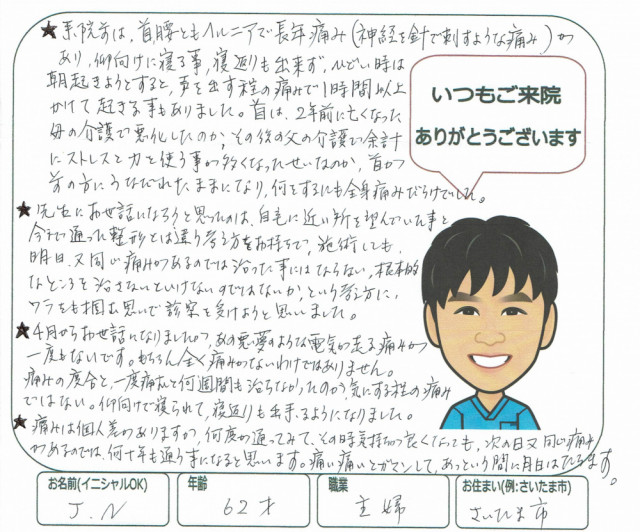 ★来院前は、首腰ともヘルニアで長年痛み(神経を針で刺すような痛み)が
あり、仰向けに寝る事、寝返りも出来ず、ひどい時は
朝起きようとすると、声を出す程の痛みで1時間以上
かけて起きる事もありました。首は、2年前に亡くなった
母の介護で悪化したのか、その後の父の介護で余計
にストレスと力を使う事が多くなったせいなのか、首が
前の方にうなだれたままになり、何をするにも全身痛みだらけでした。
★先生にお世話になろうと思ったのは、自宅に近い所を望んでいた事と
今まで通った整形とは違う考え方をお持ちで、施術しても、
明日、又同じ痛みがあるのでは治った事にはならない、根本的
なところを治さないといけないのではないか、という考え方に、
ワラをも掴む思いで診察を受けようと思いました。
★4月からお世話になりましたが、あの悪夢のような電気が走る痛みが
一度もないです。もちろん全く痛みがないわけではありません。
痛みの度合と、一度痛むと何週間も治らなかったのが、気にする程の痛み
ではない。仰向けで寝られて、寝返りも出来るようになりました。
★痛みは個人差がありますが、何度か通ってみて、その時気持ちが良くなっても、次の日又同じ痛み
があるのでは、何十年も通う事になると思います。痛い痛いとガマンして、あっという間に月日はたちます。
いつもご来院
ありがとうございます
お名前(イニシャルOK) 年齢 職業 お住まい(例:さいたま市)
J.N 62才 主婦 さいたま市